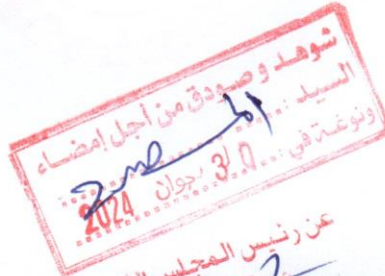 شوهد وصودق من أجل إمضاء
السيد : المصرح
ونوغة في : 30 جوان 2024
عن رئيس المجلس